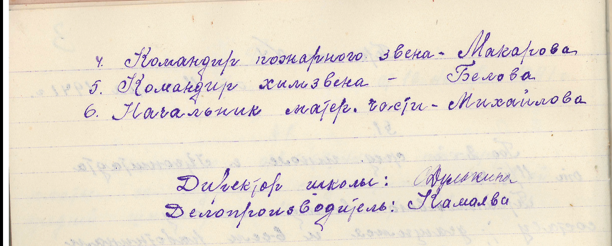 4. Командир пожарного звена - Макарова
5. Командир химзвена - Белова
6. Начальник матер. части - Михайлова
Директор школы:
Делопроизводитель: Камаева